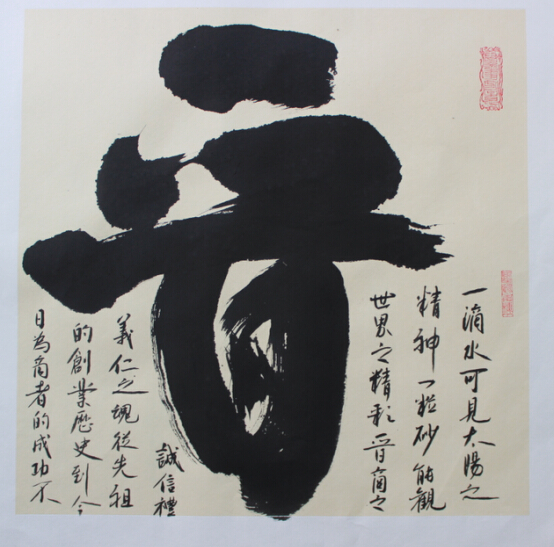 一滴水可見太陽之
精神一粒砂能觀
世界之精彩晋商之
誠信禮
義仁之魂從先祖
的創業歷史到今
日為商者的成功不